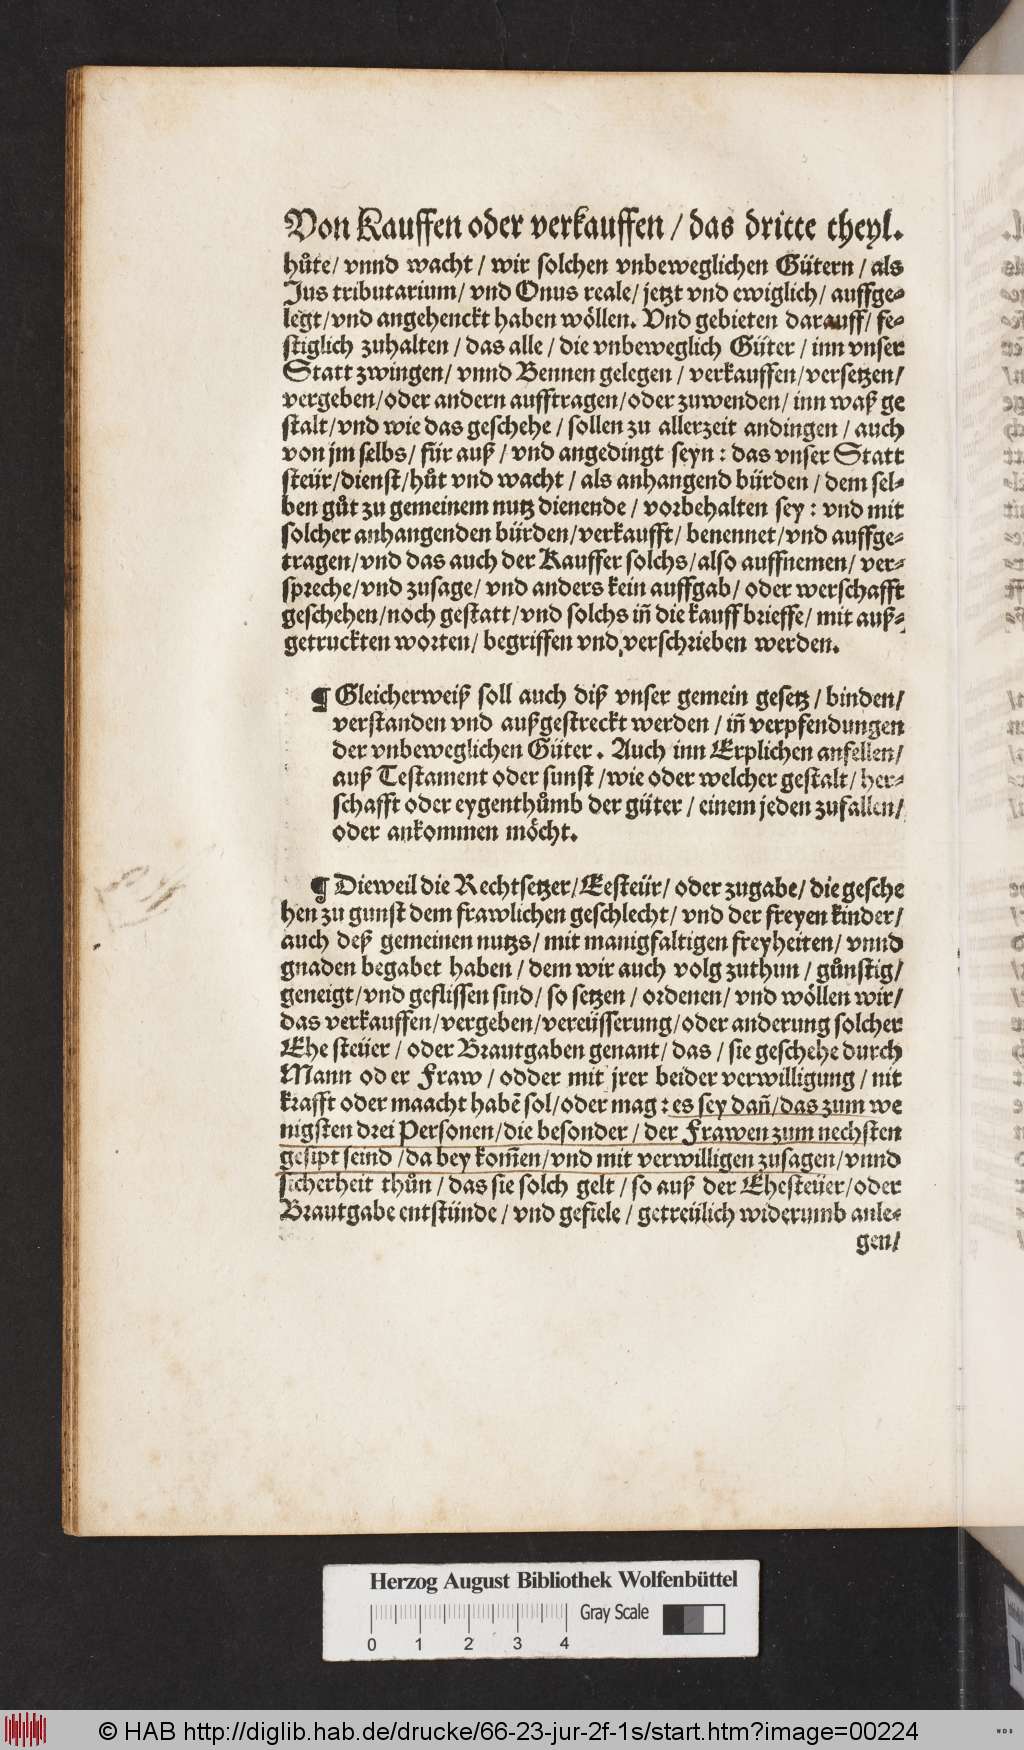 Von Kauffen oder verkauffen / das dritte theyl.
hůte / vnnd wacht / wir solchen vnbeweglichen Gütern / als
Jus tributarium / vnd Onus reale / jetzt vnd ewiglich / auffge⸗
legt / vnd angehenckt haben wöllen. Vnd gebieten darauff / fe⸗
stiglich zuhalten / das alle / die vnbeweglich Güter / inn vnser
Statt zwingen / vnnd Bennen gelegen / verkauffen / versetzen /
vergeben / oder andern aufftragen / oder zuwenden / inn waß ge
stalt / vnd wie das geschehe / sollen zu allerzeit andingen / auch
von jm selbs / für auß / vnd angedingt seyn : das vnser Statt
steür / dienst / hůt vnd wacht / als anhangend bürden / dem sel⸗
ben gůt zu gemeinem nutz dienende / vorbehalten sey : vnd mit
solcher anhangenden bürden / verkaufft / benennet / vnd auffge⸗
tragen / vnd das auch der Kauffer solchs / also auffnemen / ver⸗
spreche / vnd zusage / vnd anders kein auffgab / oder werschafft
geschehen / noch gestatt / vnd solchs iñ die kauff brieffe / mit auß⸗
getruckten worten / begriffen vnd verschrieben werden.
¶ Gleicherweiß soll auch diß vnser gemein gesetz / binden /
verstanden vnd außgestreckt werden / iñ verpfendungen
der vnbeweglichen Güter. Auch inn Erplichen anfellen /
auß Testament oder sunst / wie oder welcher gestalt / her⸗
schafft oder eygenthůmb der güter / einem jeden zufallen /
oder ankommen möcht.
¶ Dieweil die Rechtsetzer / Eesteür / oder zugabe / die gesche
hen zu gunst dem frawlichen geschlecht / vnd der freyen kinder /
auch deß gemeinen nutzs / mit manigfaltigen freyheiten / vnnd
gnaden begabet haben / dem wir auch volg zuthun / gůnstig /
geneigt / vnd geflissen sind / so setzen / ordenen / vnd wöllen wir /
das verkauffen / vergeben / vereüsserung / oder anderung solcher
Ehe steüer / oder Brautgaben genant / das / sie geschehe durch
Mann od er Fraw / odder mit jrer beider verwilligung / nit
krafft oder maacht habē sol / oder mag : es sey dañ / das zum we
nigsten drei Personen / die besonder / der Frawen zum nechsten
gesipt seind / da bey kom̃en / vnd mit verwilligen zusagen / vnnd
sicherheit thůn / das sie solch gelt / so auß der Ehesteüer / oder
Brautgabe entstünde / vnd gefiele / getreülich widerumb anle⸗
gen /
Herzog August Bibliothek Wolfenbüttel
Gray Scale
0 1 2 3 4
© HAB http://diglib.hab.de/drucke/66-23-jur-2f-1s/start.htm?image=00224